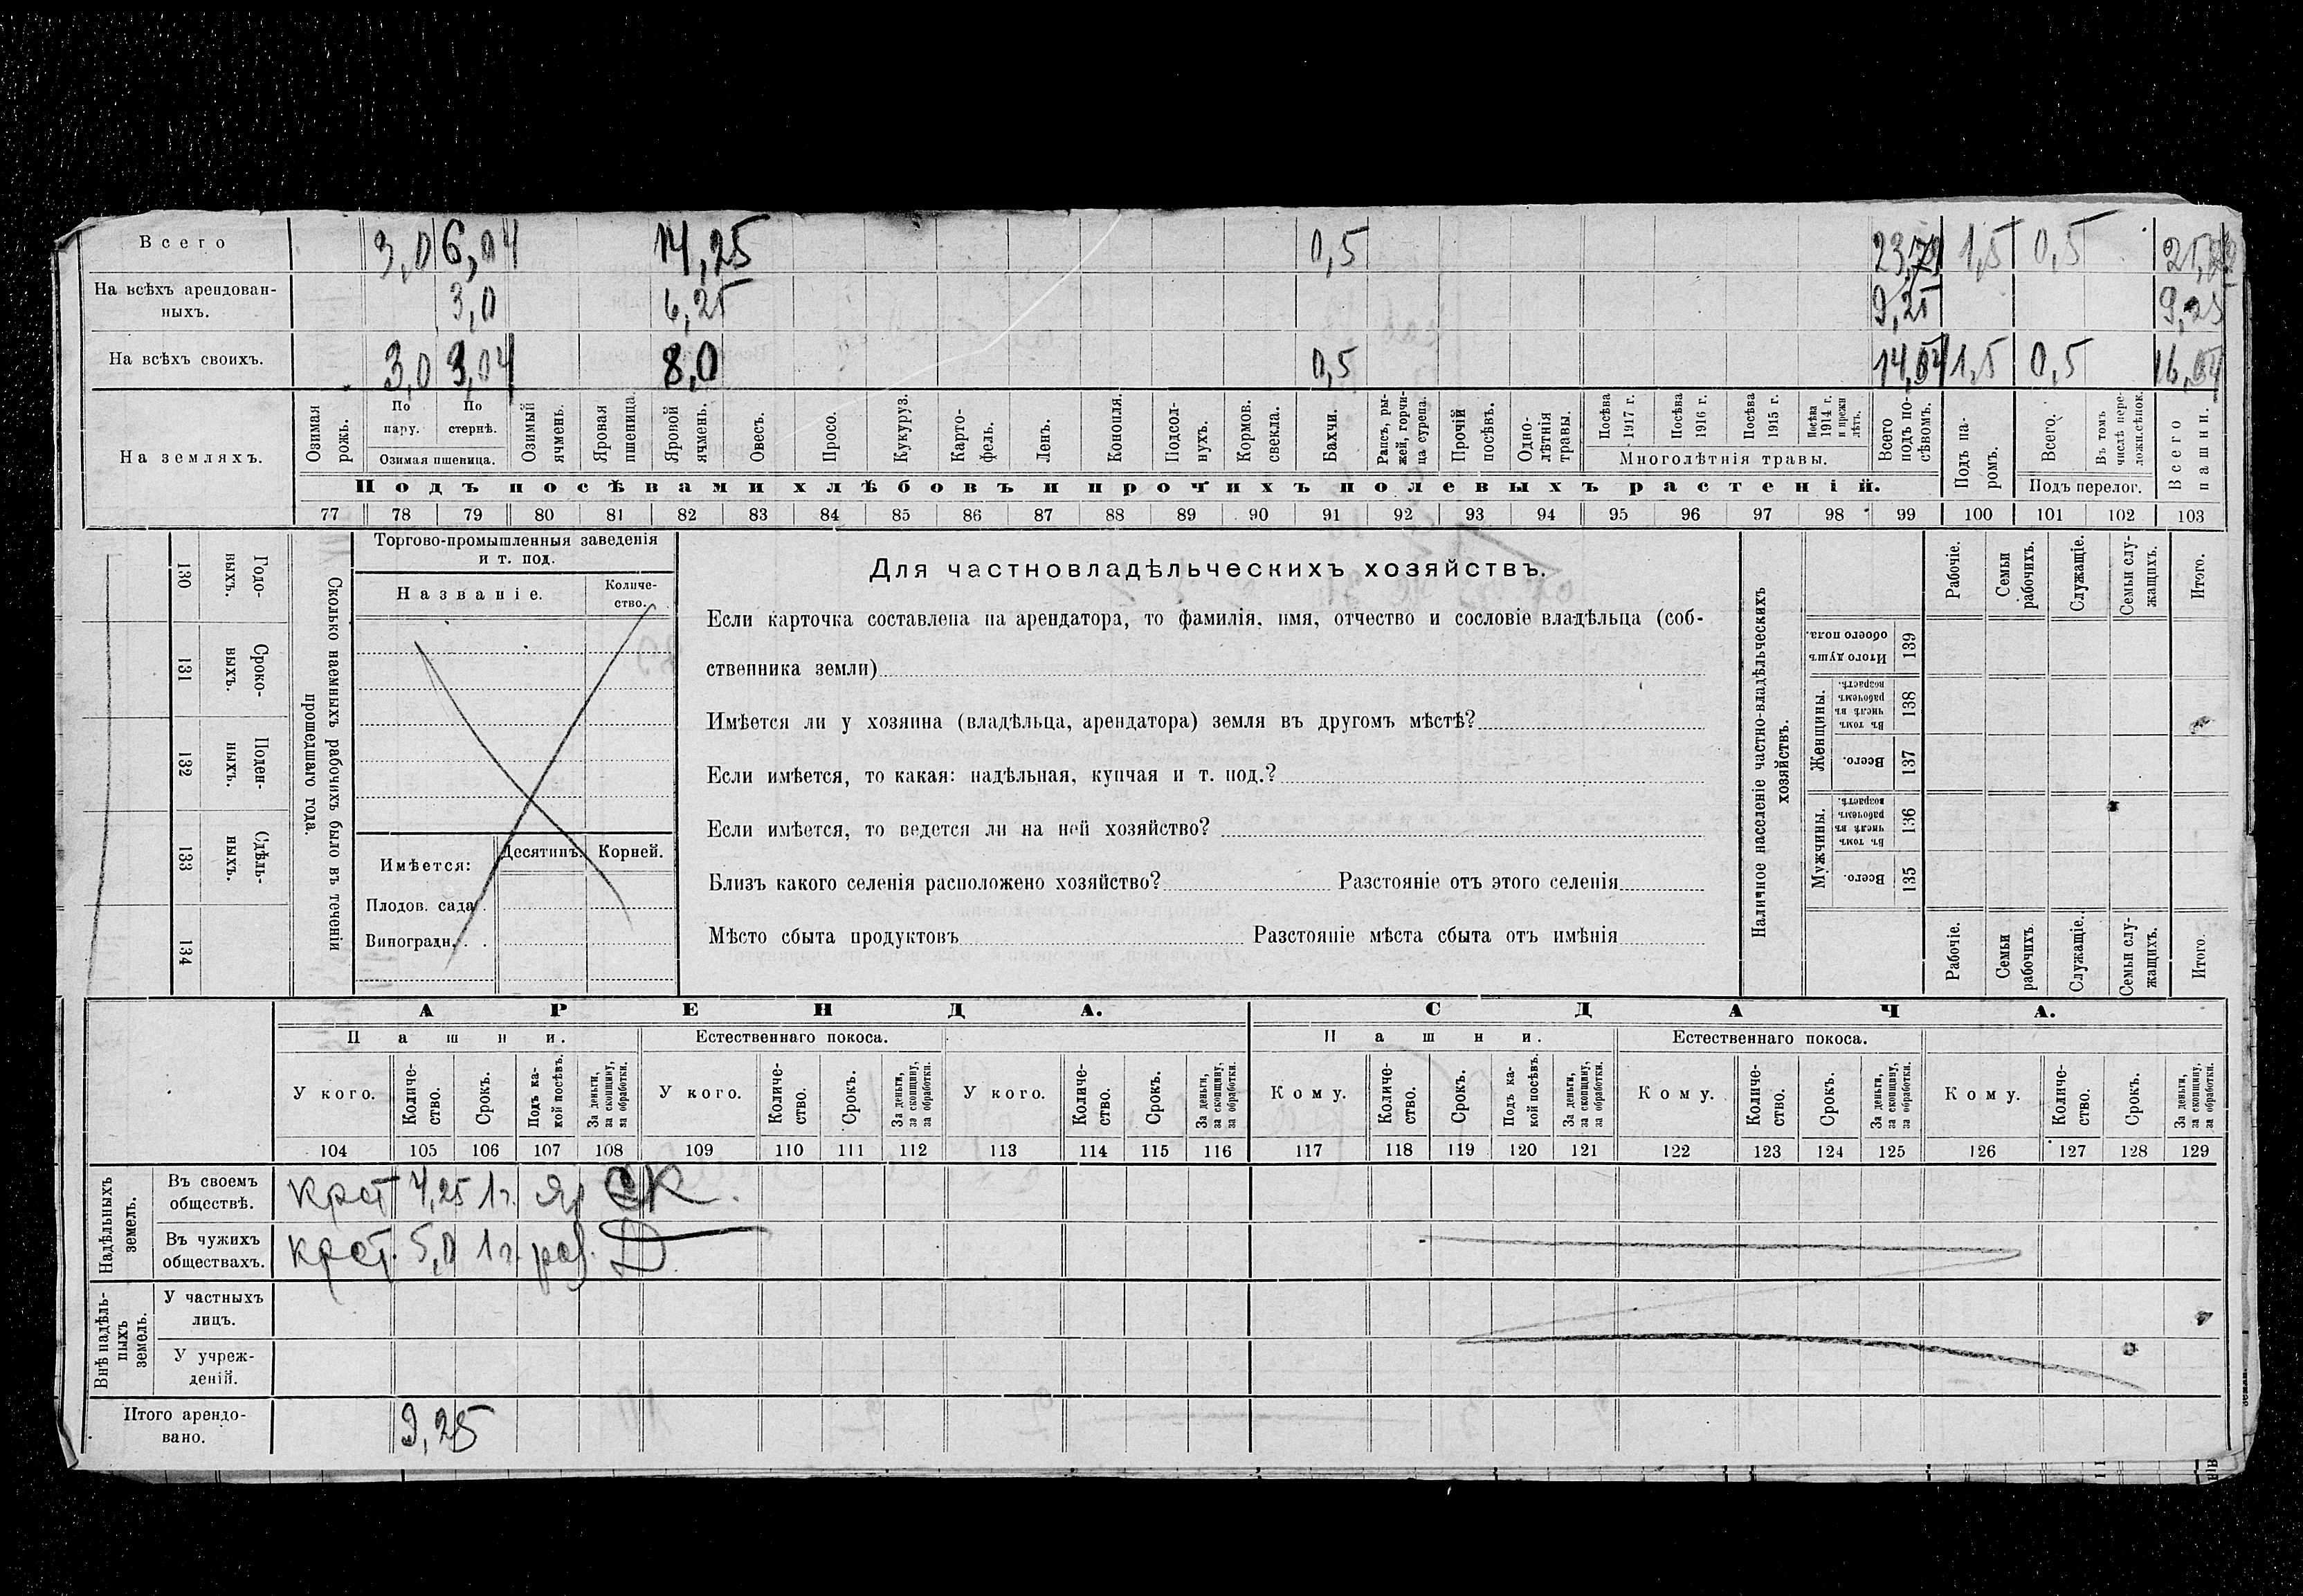 Всего 3,0 6,04 14,25 0,5 1,5 0,5
На всѣхъ арендован-
ныхъ. 3,0 6,25 9,25 9,25
На всѣхъ своихъ. 3,0 3,04 8,0 0,5 14,54 1,5 0,5 16,54
На земляхъ.
Озимая рожь.
По пару.
По стернѣ.
Озимая пшеница.
Озимый ячмень.
Яровая пшеница.
Яровой ячмень.
Овесъ.
Просо.
Кукуруз.
Карто-
фель.
Ленъ.
Конопля.
Подсол-
нухъ.
Кормов.
свекла.
Бахчи.
Рапсъ, ры-
жей, горчи-
ца сурепа.
Прочій
посѣвъ.
Одно-
лѣтнія
травы.
Посѣва
1917 г.
Посѣва
1916 г.
Посѣва
1915 г.
Посѣва
1914 г.
и прежн
лѣтъ.
Многолѣтнія травы.
Всего
подъ по-
сѣвомъ.
Подъ па-
ромъ.
Всего.
Въ томъ
числѣ пере-
ложн.сѣнок.
Подъ перелог.
Всего
пашни.
Подъ посѣвами хлѣбовъ и прочихъ полевыхъ растеній.
77 78 79 80 81 82 83 84 85 86 87 88 89 90 91 92 93 94 95 96 97 98 99 100 101 102 103
Годо-
выхъ.
130
Сроко-
выхъ.
131
Поден-
ныхъ.
132
Сдѣль-
ныхъ.
133
134
Сколько наемныхъ рабочихъ было въ теченіи
прошедшаго года.
Торгово-промышленныя заведенія
и т. под.
Названіе.
Количе-
ство.
Имѣется: Десятинъ. Корней.
Плодов. сада.
Виноградн. . .
Для частновладѣльческихъ хозяйствъ.
Если карточка составлена на арендатора, то фамилія, имя, отчество и сословіе владѣльца (соб-
ственника земли)
Имѣется ли у хозяина (владѣльца, арендатора) земля въ другомъ мѣстѣ?
Если имѣется, то какая: надѣльная, купчая и т. под.?
Если имѣется, то ведется ли на ней хозяйство?
Близъ какого селенія расположено хозяйство? Разстояніе отъ этого селенія
Мѣсто сбыта продуктовъ Разстояніе мѣста сбыта отъ имѣнія
Наличное населеніе частно-владѣльческихъ
хозяйствъ.
Рабочіе.
Семьи
рабочихъ.
Служащіе.
Семьи слу-
жащихъ.
Итого.
Итого душъ
обоего пола.
139
Женщины.
Въ томъ
числѣ въ
рабочемъ
возрастѣ.
138
Всего.
137
Мужчины.
Въ томъ
числѣ въ
рабочемъ
возрастѣ.
136
Всего.
135
Рабочіе.
Семьи
рабочихъ.
Служащіе.
Семьи слу-
жащихъ.
Итого.
АРЕНДА. СДАЧА.
Пашни. Естественнаго покоса. Пашни. Естественнаго покоса.
У кого.
Количе-
ство.
Срокъ.
Подъ ка-
кой посѣвъ.
За деньги,
за скопщину,
за обработки.
У кого.
Количе-
ство.
Срокъ.
За деньги,
за скопщину,
за обработки.
У кого.
Количе-
ство.
Срокъ.
За деньги,
за скопщину,
за обработки.
Кому.
Количе-
ство.
Срокъ.
Подъ ка-
кой посѣвъ.
За деньги,
за скопщину,
за обработки.
Кому.
Количе-
ство.
Срокъ.
За деньги,
за скопщину,
за обработки.
Кому.
Количе-
ство.
Срокъ.
За деньги,
за скопщину,
за обработки.
104 105 106 107 108 109 110 111 112 113 114 115 116 117 118 119 120 121 122 123 124 125 126 127 128 129
Надѣльныхъ
земель.
Въ своемъ
обществѣ. крст 4,25 1 г. яр СК.
Въ чужихъ
обществахъ. крст. 5,0 1 г. раз. Д
Внѣ надѣль-
ныхъ
земель.
У частныхъ
лицъ.
У учреж-
деній.
Итого арендо-
вано. 9,25